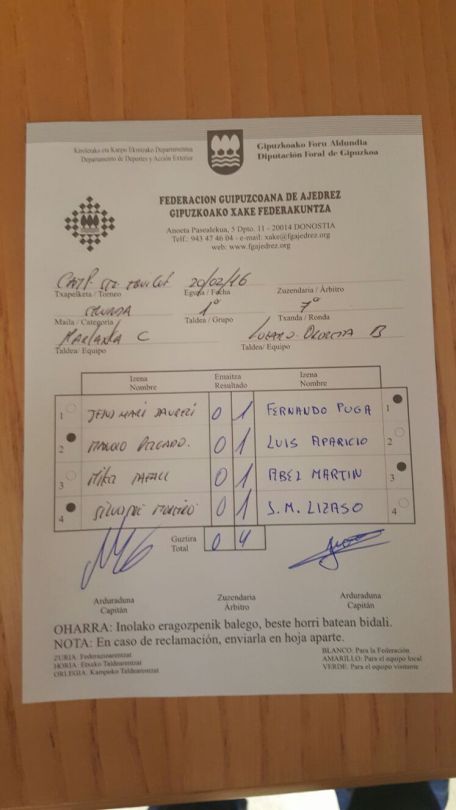 Kiroletako eta Kanpo Ekintzako Departamentua
Departamento de Deportes y Acción Exterior
Gipuzkoako Foru Aldundia
Diputación Foral de Gipuzkoa
FEDERACION GUIPUZCOANA DE AJEDREZ
GIPUZKOAKO XAKE FEDERAKUNTZA
Anoeta Pasealekua, 5 Dpto. 11 - 20014 DONOSTIA
Telf.: 943 47 46 04 - e-mail: xake@fgajedrez.org
web: www.fgajedrez.org
20/02/16
Txapelketa / Torneo Eguna / Fecha Zuzendaria / Árbitro
1º 7º
Maila / Categoría Taldea / Grupo Txanda / Ronda
MARIANKA C B
Taldea/ Equipo Taldea/ Equipo
Izena Nombre Emaitza Resultado Izena Nombre
1 0 1 FERNANDO PUGA 1
2 0 1 LUIS APARICIO 2
3 Mikel 0 1 ABEL MARTIN 3
4 0 1 J.M. LIZASO 4
Guztira Total 0 4
Arduraduna Capitán Zuzendaria Árbitro Arduraduna Capitán
OHARRA: Inolako eragozpenik balego, beste horri batean bidali.
NOTA: En caso de reclamación, enviarla en hoja aparte.
ZURIA: Federazioarentzat BLANCO: Para la Federación
HORIA: Etxeko Taldearentzat AMARILLO: Para el equipo local
ORLEGIA: Kanpoko Taldearentzat VERDE: Para el equipo visitante